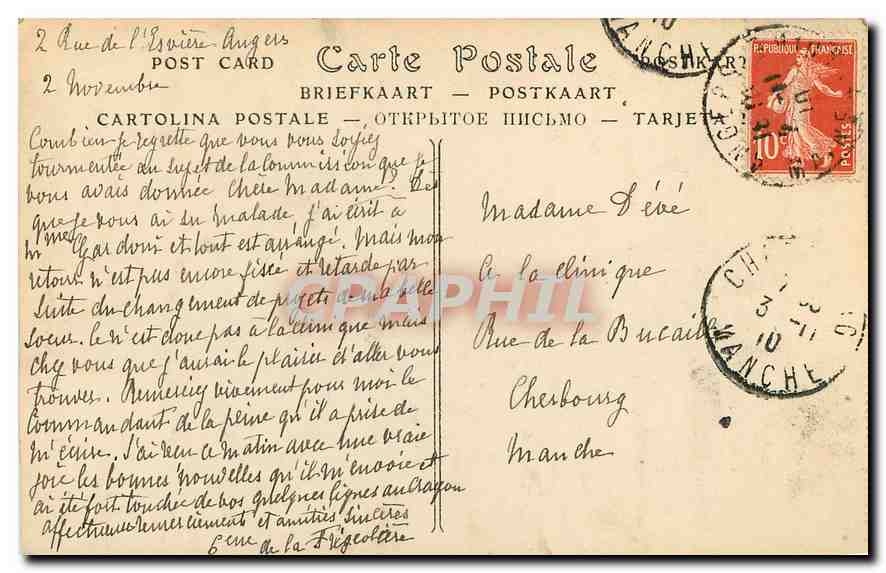 2 Rue de l'Esvière Angers
2 Novembre
POST CARD Carte Postale POSTKART
BRIEFKAART — POSTKAART
CARTOLINA POSTALE — ОТКРЫТОЕ ПИСЬМО — TARJET
Combien je regrette que vous vous soyiez
tourmentée au sujet de la commission que je
vous avais donnée chère Madame! Dès
que je vous ai su malade, j'ai écrit à
et tout est arrangé. Mais mon
retour n'est pas encore fixée et retarde par
suite du changement de projets de ma belle
soeur. Ce n'est donc pas à la clinique mais
chez vous que j'aurai le plaisir d'aller vous
trouver. Remerciez vivement pour moi le
Commandant de la peine qu'il a prise de
m'écrire. J'ai reçu ce matin avec une vraie
joie les bonnes nouvelles qu'il m'envoie et
ai été fort touchée de vos quelques lignes au crayon
affectueux remerciements et amitiés sincères
de la Frégeolière
Madame Dévé
A la clinique
Rue de la Bucaille
Cherbourg
Manche
REPUBLIQUE FRANÇAISE
10c
POSTES
MANCHE
CHERBOURG
3 -11
10
MANCHE
CPAPHIL